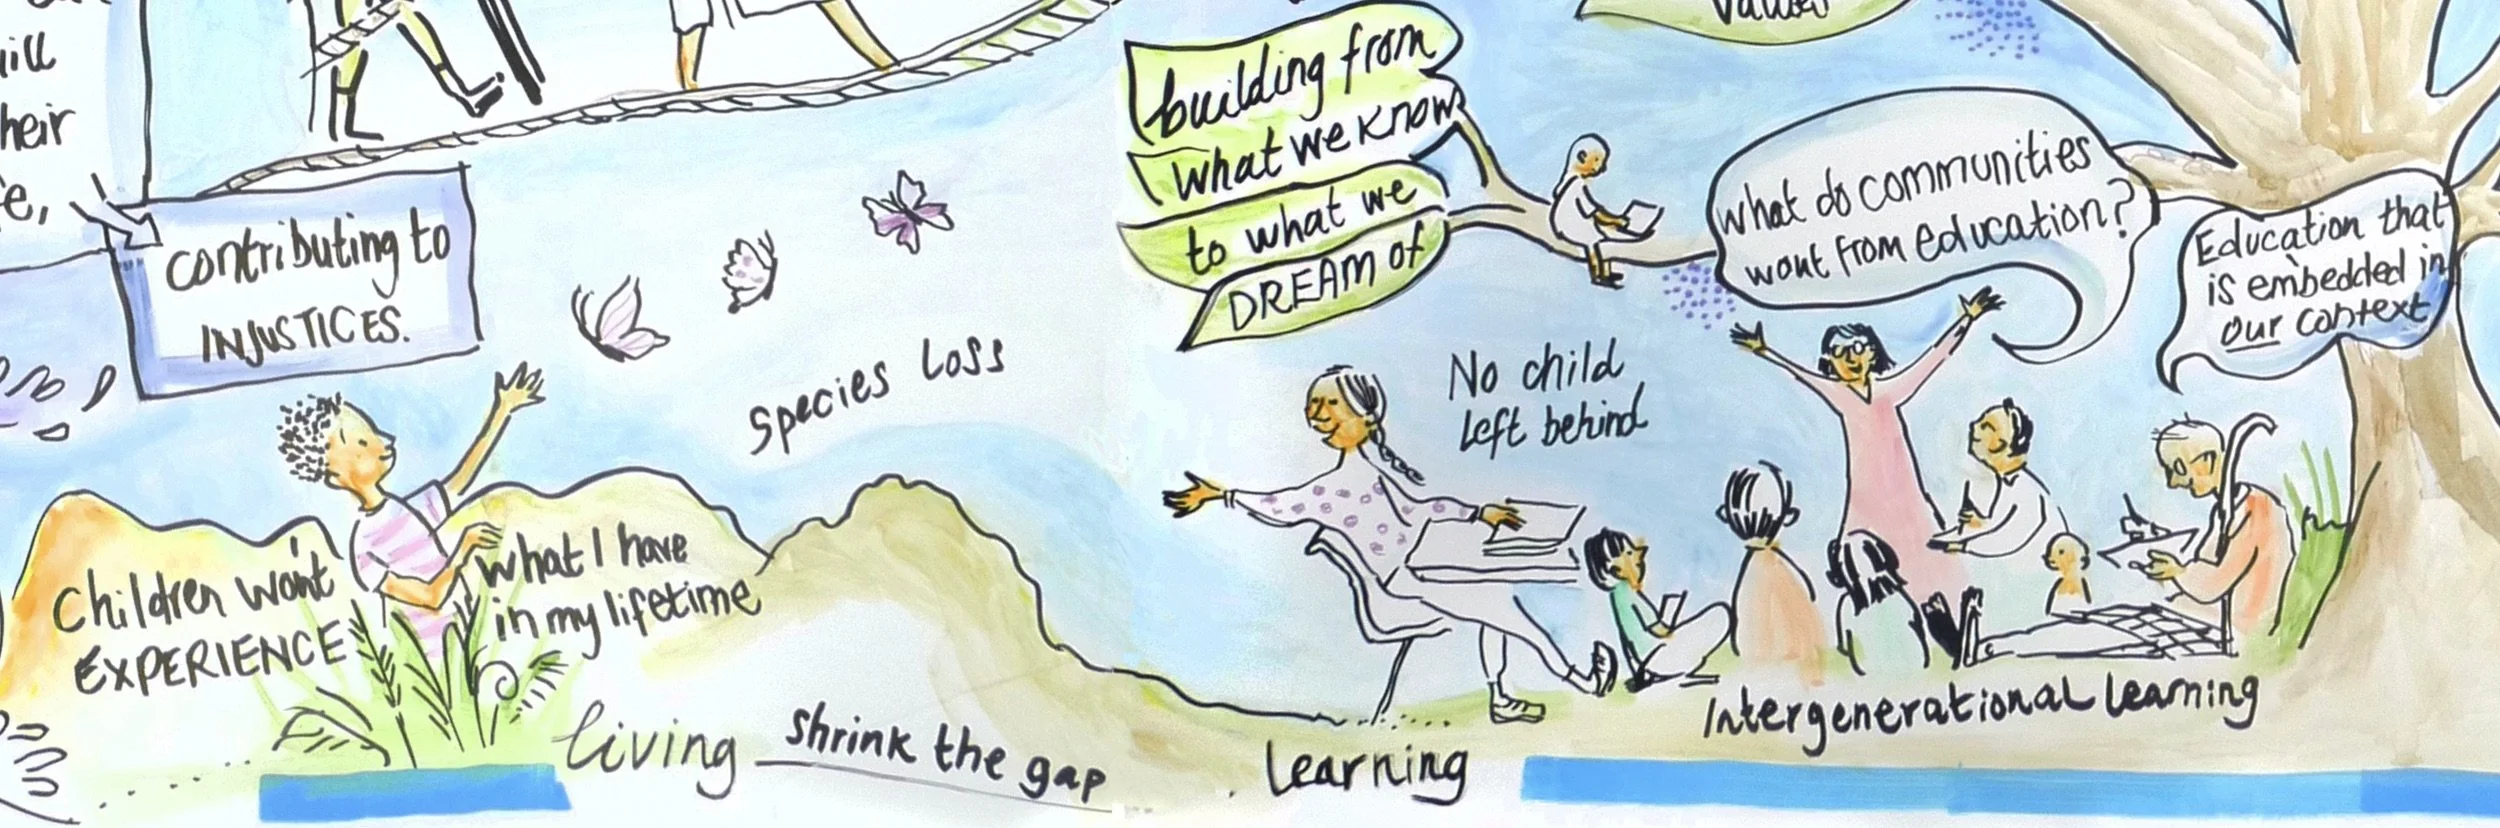 ill
heir
e,
contributing to
INJUSTICES.
Species Loss
Children won't
EXPERIENCE
what I have
in my lifetime
living shrink the gap
Learning
building from
what we know
to what we
DREAM of
No child
left behind
what do communities
want from education?
Education that
is embedded in
our context
Intergenerational learning